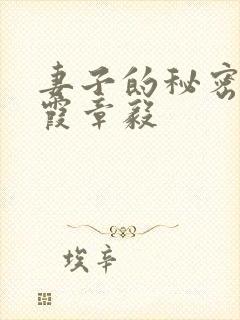 妻子的秘密
霞章毅
埃辛